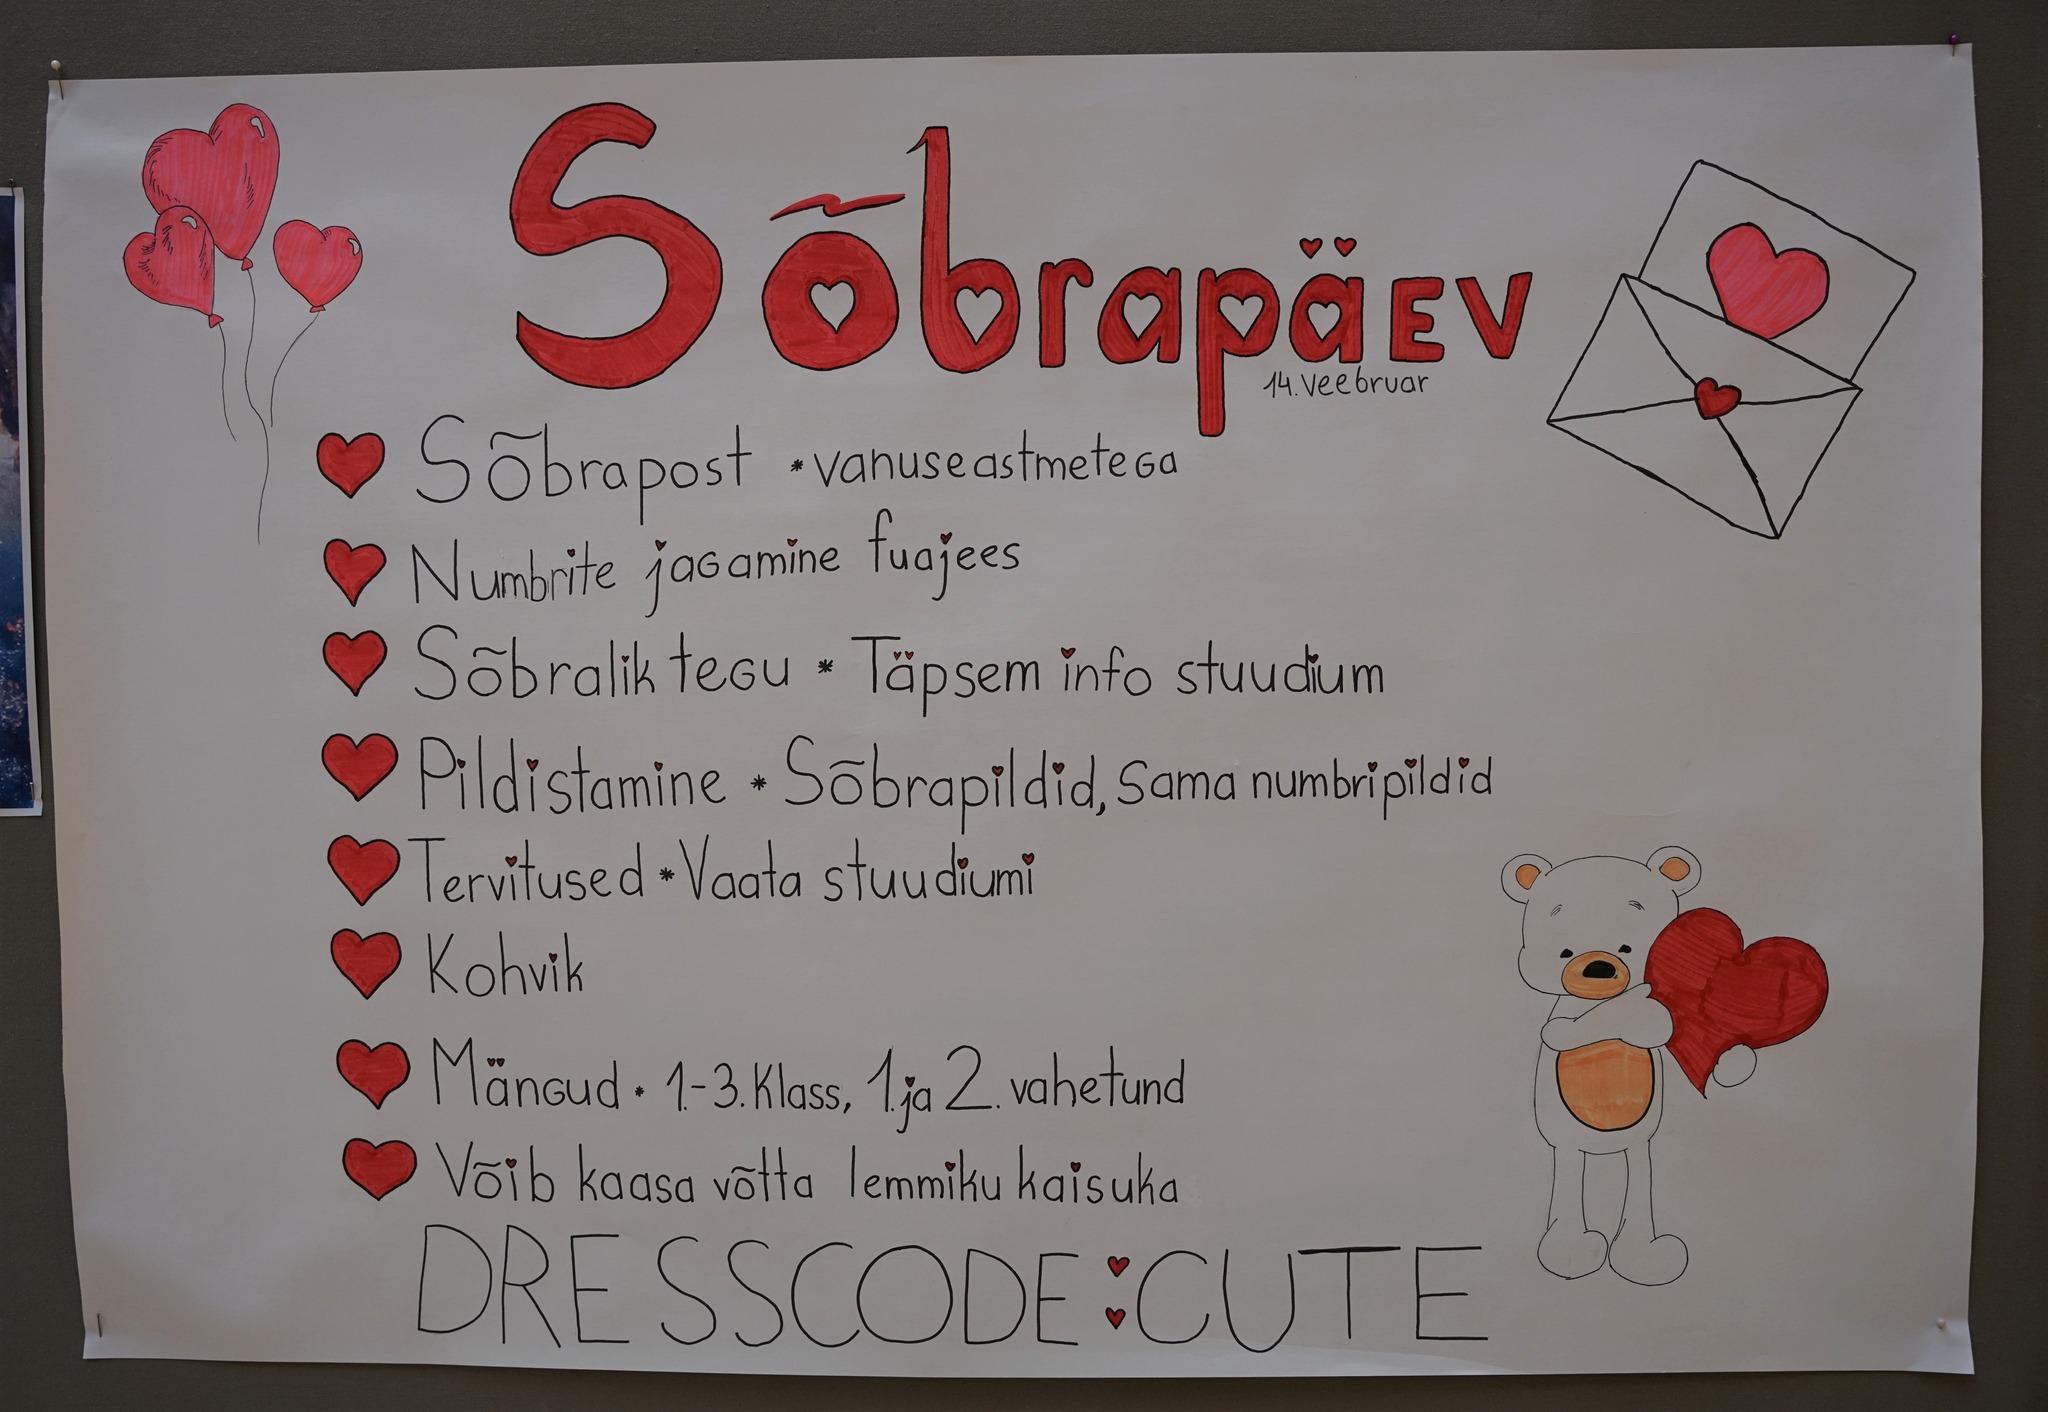 Sõbrapäev
14. veebruar
Sõbrapost * vanuseastmetega
Numbrite jagamine fuajees
Sõbralik tegu * Täpsem info stuudium
Pildistamine * Sõbrapildid, sama numbripildid
Tervitused * Vaata stuudiumi
Kohvik
Mängud * 1.-3. klass, 1. ja 2. vahetund
Võib kaasa võtta lemmiku kaisuka
DRESSCODE: CUTE